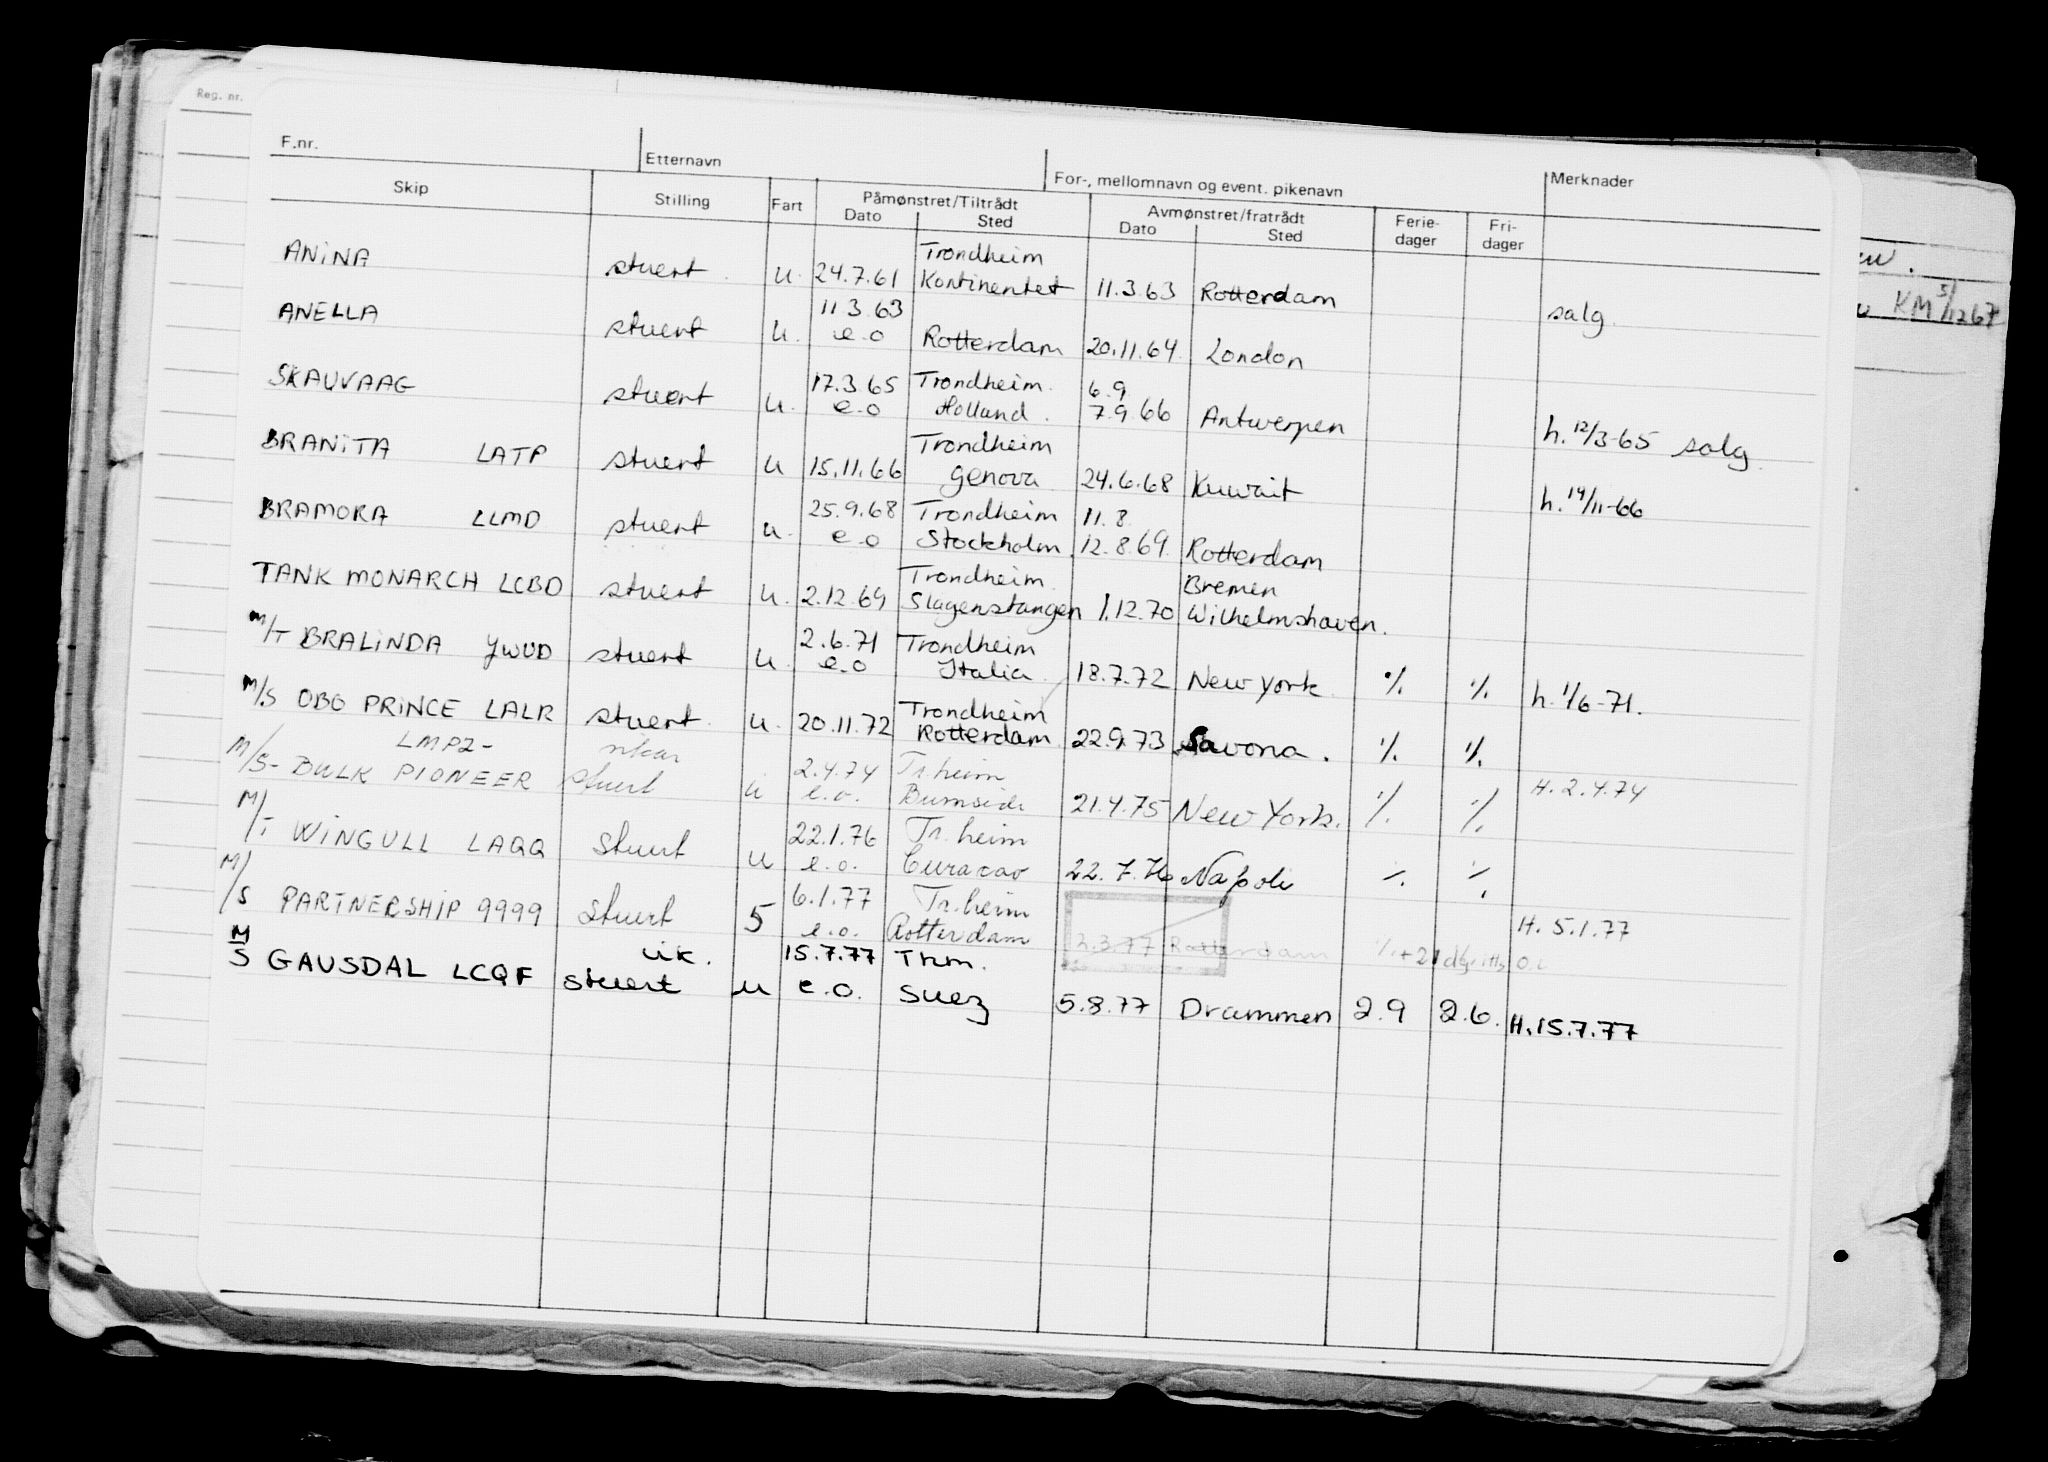 Reg. nr.
F.nr. Etternavn For-, mellomnavn og event. pikenavn Merknader
Skip Stilling Fart Påmønstret/Tiltrådt Dato Sted Avmønstret/fratrådt Dato Sted Ferie-dager Fri-dager
ANINA stuert u. 24.7.61 Trondheim Kontinentet 11.3.63 Rotterdam salg.
ANELLA stuert u. 11.3.63 e.o Rotterdam 20.11.64. London
SKAUVAAG stuert u. 17.3.65 e.o Trondheim. Holland. 6.9 7.9.66 Antwerpen h. 12/3-65 salg.
BRANITA LATP stuert u 15.11.66 Trondheim Genova 24.6.68 Kuwait h. 14/11-66
BRAMORA LLMD stuert u. 25.9.68 e.o Trondheim Stockholm 11.8. 12.8.69. Rotterdam
TANK MONARCH LCBD stuert u. 2.12.69 Trondheim. Slagenstangen 1.12.70 Bremen Wilhelmshaven.
M/T BRALINDA JWUD stuert u. 2.6.71 e.o Trondheim Italia. 18.7.72 New York. % % h. 1/6-71.
M/S OBO PRINCE LALR stuert. u. 20.11.72 Trondheim Rotterdam 22.9.73 Savona. % %
LMPZ-
M/S- BULK PIONEER stuert u 2.4.74 e.o. Tr.heim Burnside 21.4.75 New York. % % H. 2.4.74
M/T WINGULL LAQQ Stuert u 22.1.76 e.o. Tr.heim Curacao 22.7.76 Napoli % %
M/S PARTNERSHIP 9999 Stuert 5 6.1.77 e.o. Tr.heim Rotterdam 2.3.77 Rotterdam H. 5.1.77
M/S GAUSDAL LCQF vik. stuert u 15.7.77 e.o. Thm. Suez 5.8.77 Drammen 2.9 2.6. H.15.7.77
KM 5/12 67